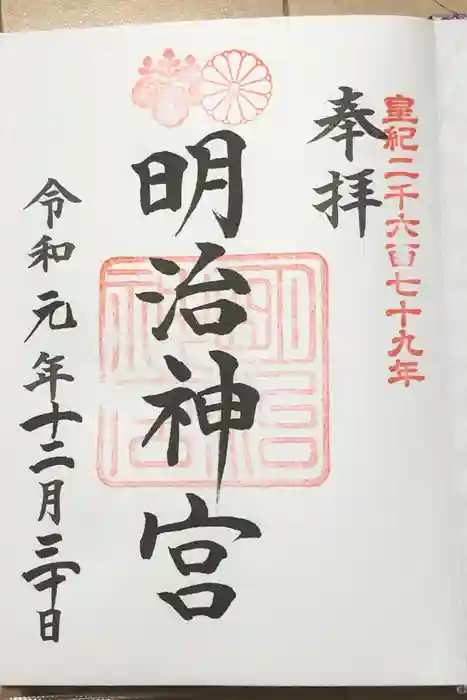 皇紀二千六百七十九年
奉拝
明治神宮
令和元年十二月三十日